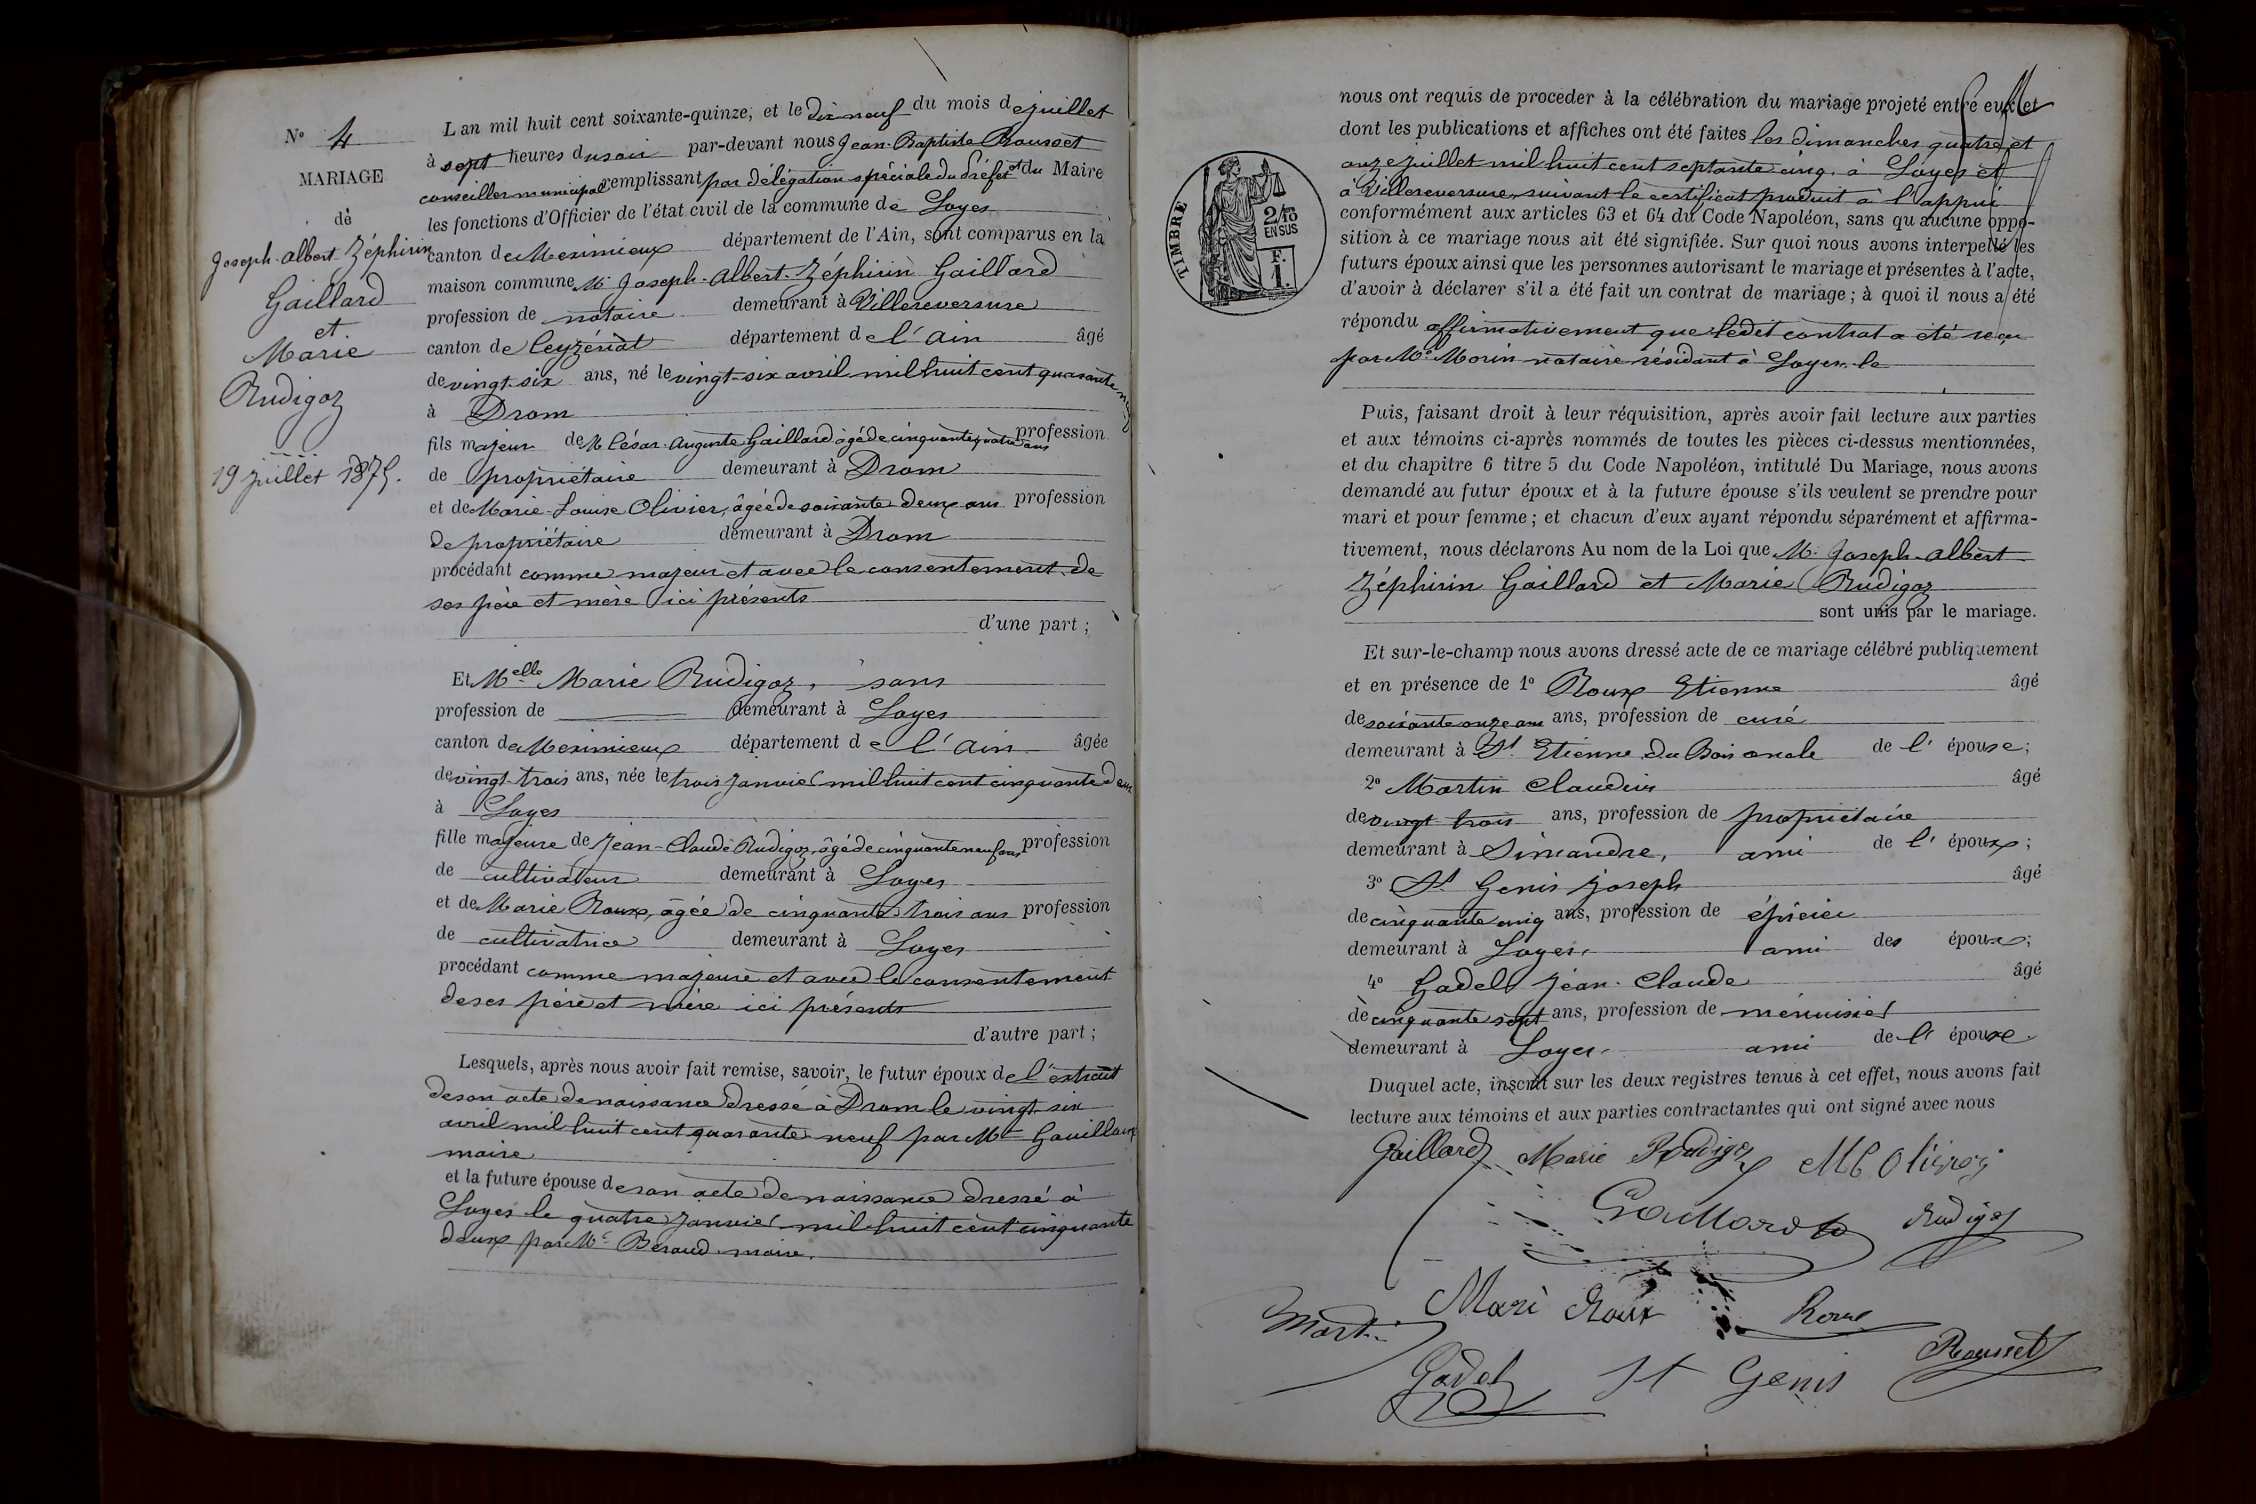 N° 4
MARIAGE
de
Joseph-Albert-Zéphirin
Gaillard
et
Marie
Rudigoz
19 juillet 1875.
L'an mil huit cent soixante-quinze, et le dix neuf du mois de juillet
à sept heures du soir par-devant nous Jean-Baptiste Rousset
conseiller municipal remplissant par délégation spéciale du Préfet et du Maire
les fonctions d'Officier de l'état civil de la commune de Loyes
canton de Meximieux département de l'Ain, sont comparus en la
maison commune M. Joseph-Albert-Zéphirin Gaillard
profession de notaire demeurant à Villereversure
canton de Ceyzériat département de l'Ain âgé
de vingt-six ans, né le vingt-six avril mil huit cent quarante neuf
à Drom
fils majeur de M. César-Auguste Gaillard âgé de cinquante quatre ans profession
de propriétaire demeurant à Drom
et de Marie-Louise Olivier, âgée de soixante deux ans profession
de propriétaire demeurant à Drom
procédant comme majeur et avec le consentement de
ses père et mère ici présents
d'une part ;
Et Melle Marie Rudigoz, sans
profession de demeurant à Loyes
canton de Meximieux département de l'Ain âgée
de vingt-trois ans, née le trois janvier mil huit cent cinquante deux
à Loyes
fille majeure de Jean-Claude Rudigoz, âgé de cinquante neuf ans profession
de cultivateur demeurant à Loyes
et de Marie Roux, âgée de cinquante trois ans profession
de cultivatrice demeurant à Loyes
procédant comme majeure et avec le consentement
de ses père et mère ici présents
d'autre part ;
Lesquels, après nous avoir fait remise, savoir, le futur époux de l'extrait
de son acte de naissance dressé à Drom le vingt-six
avril mil huit cent quarante neuf par Mr
maire
et la future épouse de son acte de naissance dressé à
Loyes le quatre janvier mil huit cent cinquante
deux par Mr Beraud maire.
TIMBRE
2/10
EN SUS
F.
1.
nous ont requis de procéder à la célébration du mariage projeté entre eux et
dont les publications et affiches ont été faites les dimanches quatre et
onze juillet mil huit cent septante cinq, à Loyes et
à Villereversure, suivant le certificat produit à l'appui
conformément aux articles 63 et 64 du Code Napoléon, sans qu'aucune oppo-
sition à ce mariage nous ait été signifiée. Sur quoi nous avons interpellé les
futurs époux ainsi que les personnes autorisant le mariage et présentes à l'acte,
d'avoir à déclarer s'il a été fait un contrat de mariage ; à quoi il nous a été
répondu affirmativement que ledit contrat a été reçu
par Me Morin notaire résidant à Loyes le
Puis, faisant droit à leur réquisition, après avoir fait lecture aux parties
et aux témoins ci-après nommés de toutes les pièces ci-dessus mentionnées,
et du chapitre 6 titre 5 du Code Napoléon, intitulé Du Mariage, nous avons
demandé au futur époux et à la future épouse s'ils veulent se prendre pour
mari et pour femme ; et chacun d'eux ayant répondu séparément et affirma-
tivement, nous déclarons Au nom de la Loi que M. Joseph-Albert
Zéphirin Gaillard et Marie Rudigoz
sont unis par le mariage.
Et sur-le-champ nous avons dressé acte de ce mariage célébré publiquement
et en présence de 1° Roux Etienne âgé
de soixante onze ans ans, profession de curé
demeurant à St Etienne du Bois oncle de l'épouse;
2° Martin Claudius âgé
de vingt trois ans, profession de propriétaire
demeurant à Simandre, ami de l'époux;
3° St Genis Joseph âgé
de cinquante cinq ans, profession de épicier
demeurant à Loyes, ami des époux;
4° Gadel Jean-Claude âgé
de cinquante sept ans, profession de menuisier
demeurant à Loyes, ami de l'épouse.
Duquel acte, inscrit sur les deux registres tenus à cet effet, nous avons fait
lecture aux témoins et aux parties contractantes qui ont signé avec nous
Gaillard Marie Rudigoz Olivier
Gaillard Rudigoz
Martin Marie Roux Roux
Gadel St Genis Rousset